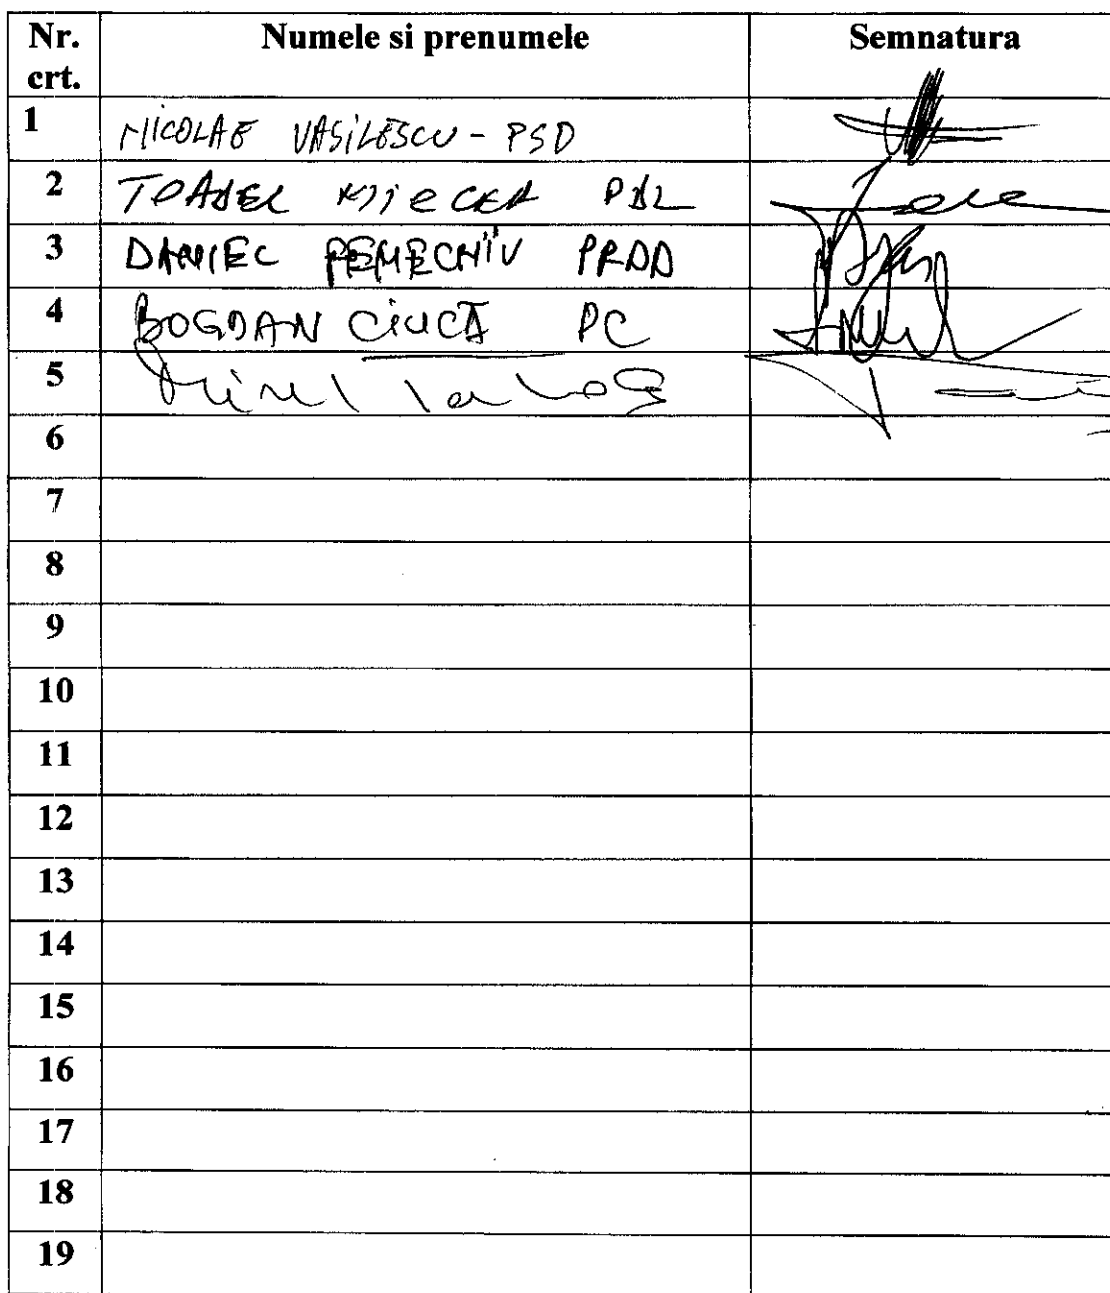 Nr. crt. Numele si prenumele Semnatura
1 NICOLAE VASILESCU - PSD
2 TOADER PDL
3 DANIEL PRDD
4 BOGDAN CIUCĂ PC
5
6
7
8
9
10
11
12
13
14
15
16
17
18
19